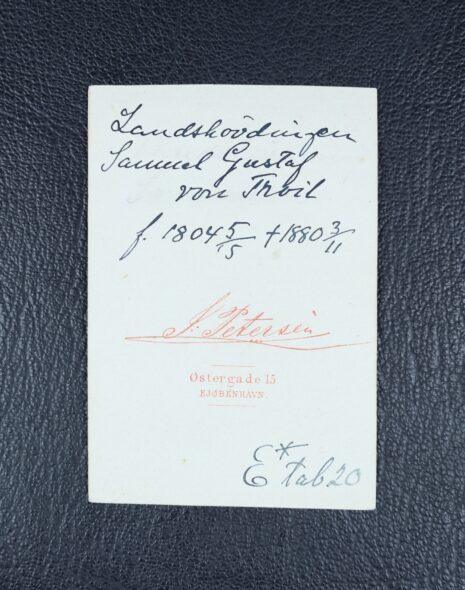 Landshövdingen
Samuel Gustaf
von Troil
f. 1804 5/5 †1880 3/11
J. Petersen
Østergade 15
KJØBENHAVN.
E* tab 20